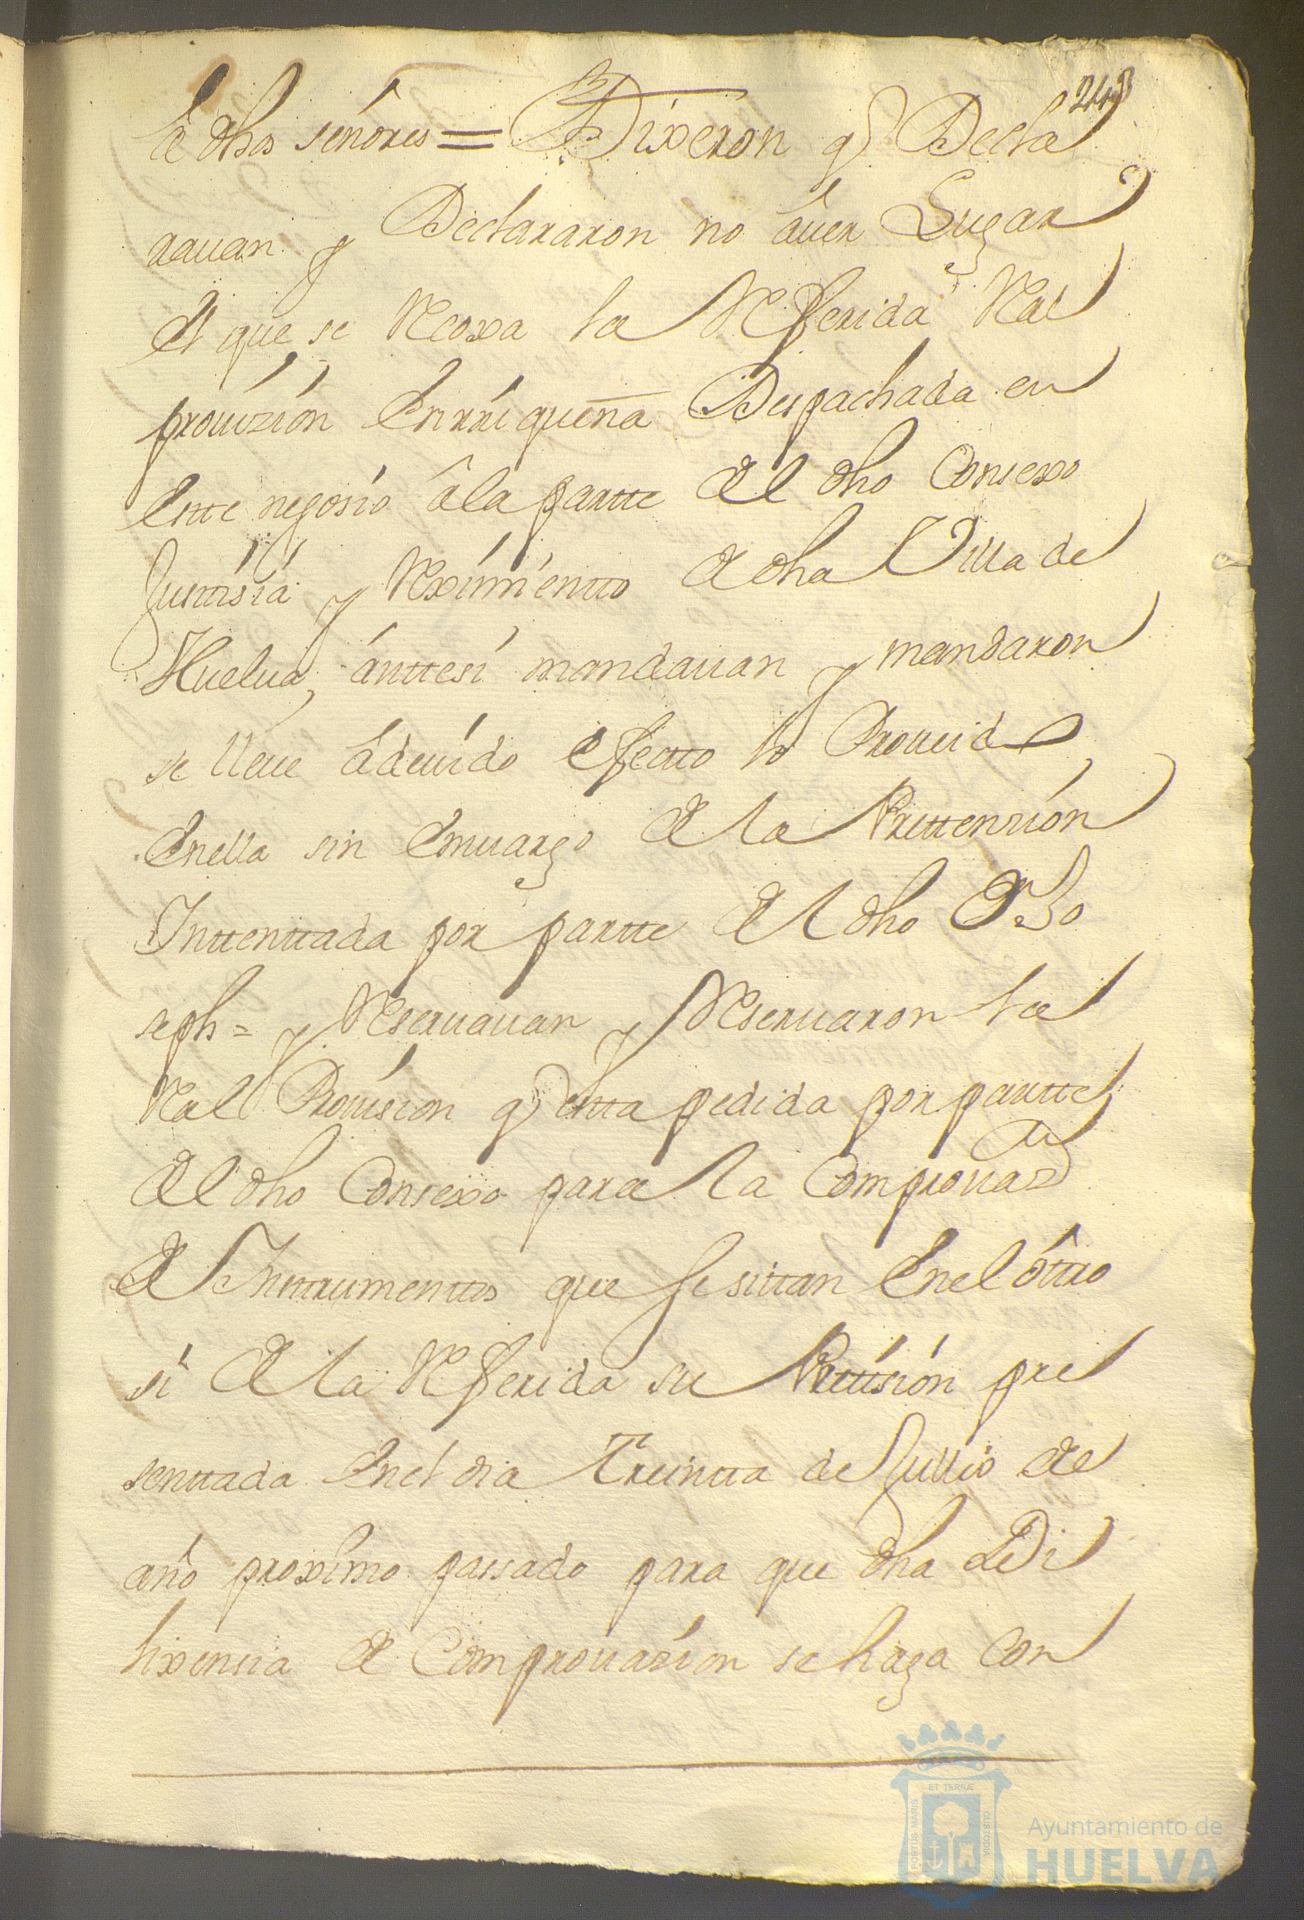 de dhos señores = Dixeron q Decla
rauan y Declararon no âuer Lugar
el que se Recoxa la Referida Real
prouizión Enrriqueña Despachada en
Este negosio â la partte del dho Consexo
Justisia y Reximientto de dha Villa de
Huelua, ânttesi mandauan y mandaron
se lleue âdeuido efectto lo Proueido
Enella sin Emuargo de la Prettenzión
Inttenttada por partte del dho Dn Jo
seph = y Reseruauan y Reseruaron la
Real Prouision q esta pedida por partte
del dho Consexo para la Comprouazon
de Instrumenttos que se sittan Enel ôttro
si de la Referida su Pettisión pre
senttada Enel dia Treintta de Jullio de
año proximo passado para que dha Di
lixensia de Comprouazion se haga Con
Ayuntamiento de
HUELVA
PORTUS MARIS
ET TERRAE
CUSTODIA